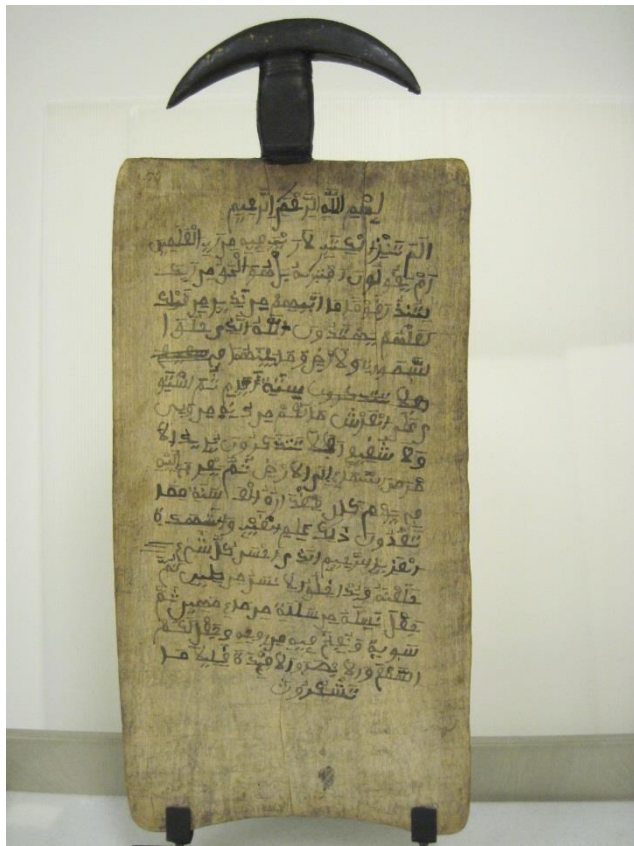 بسم الله الرحمن الرحيم
الم تنزيل الكتب لا ريب فيه من رب العلمين
أم يقولون افتريه بل هو الحق من ربك
لتنذر قوما ما اتيهم من نذير من قبلك
لعلهم يهتدون الله الذي خلق ا
لسموت والارض وما بينهما في
ستة أيام ثم استو
ى على العرش ما لكم من دونه من ولي
ولا شفيع افلا تتذكرون يدبر الا
مر من السماء الى الارض ثم يعرج اليه
في يوم كان مقداره الف سنة مما
تعدون ذلك علم الغيب والشهدة
العزيز الرحيم الذي احسن كل شيء
خلقه وبدا خلق الانسن من طين ثم
جعل نسله من سللة من ماء مهين ثم
سويه ونفخ فيه من روحه وجعل لكم
السمع والابصر والافدة قليلا ما
تشكرون